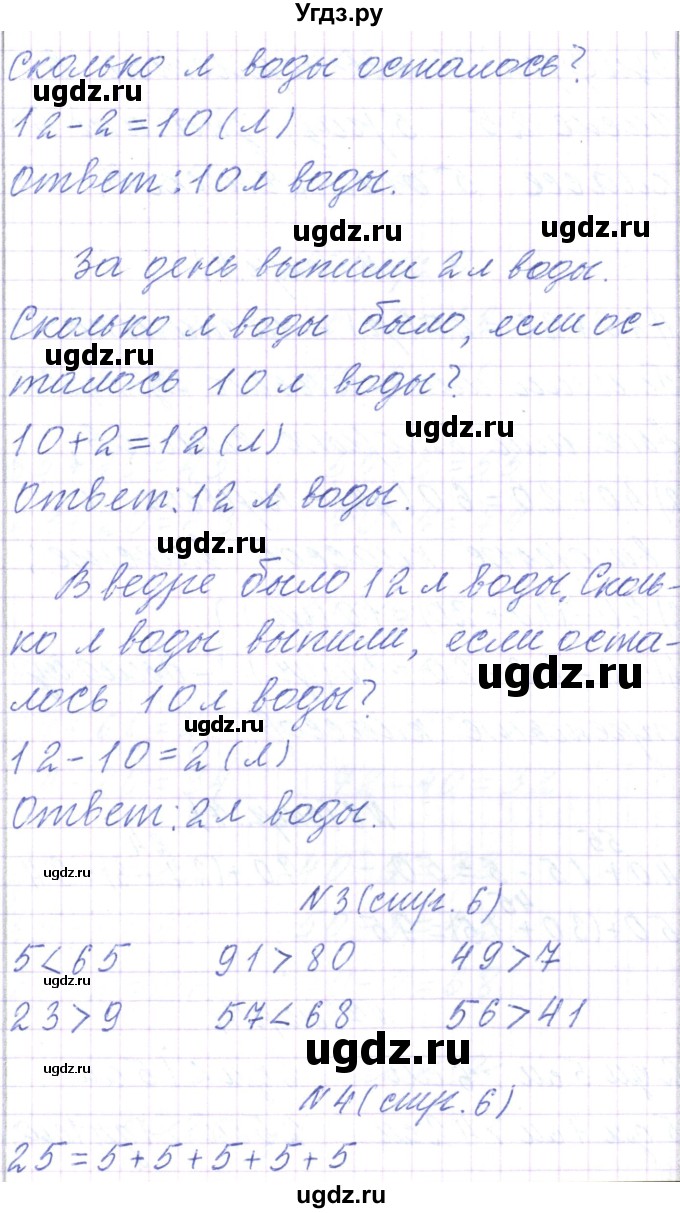 Угдз.ру
Сколько л воды осталось?
ugdz.ru
12-2=10(л)
Ответ: 10 л воды.
ugdz.ru ugdz.ru
За день выпили 2 л воды.
Сколько л воды было, если ос-
ugdz.ru
талось 10 л воды?
10+2=12(л) ugdz.ru
Ответ: 12 л воды.
ugdz.ru
В ведре было 12 л воды. Сколь-
ко л воды выпили, если оста-
ugdz.ru
лось 10 л воды?
ugdz.ru
12-10=2(л)
Ответ: 2 л воды.
ugdz.ru
N3(стр. 6)
5<65 91>80 49>7
ugdz.ru
23>9 57<68 56>41
ugdz.ru
ugdz.ru
N4(стр. 6)
25=5+5+5+5+5
ugdz.ru